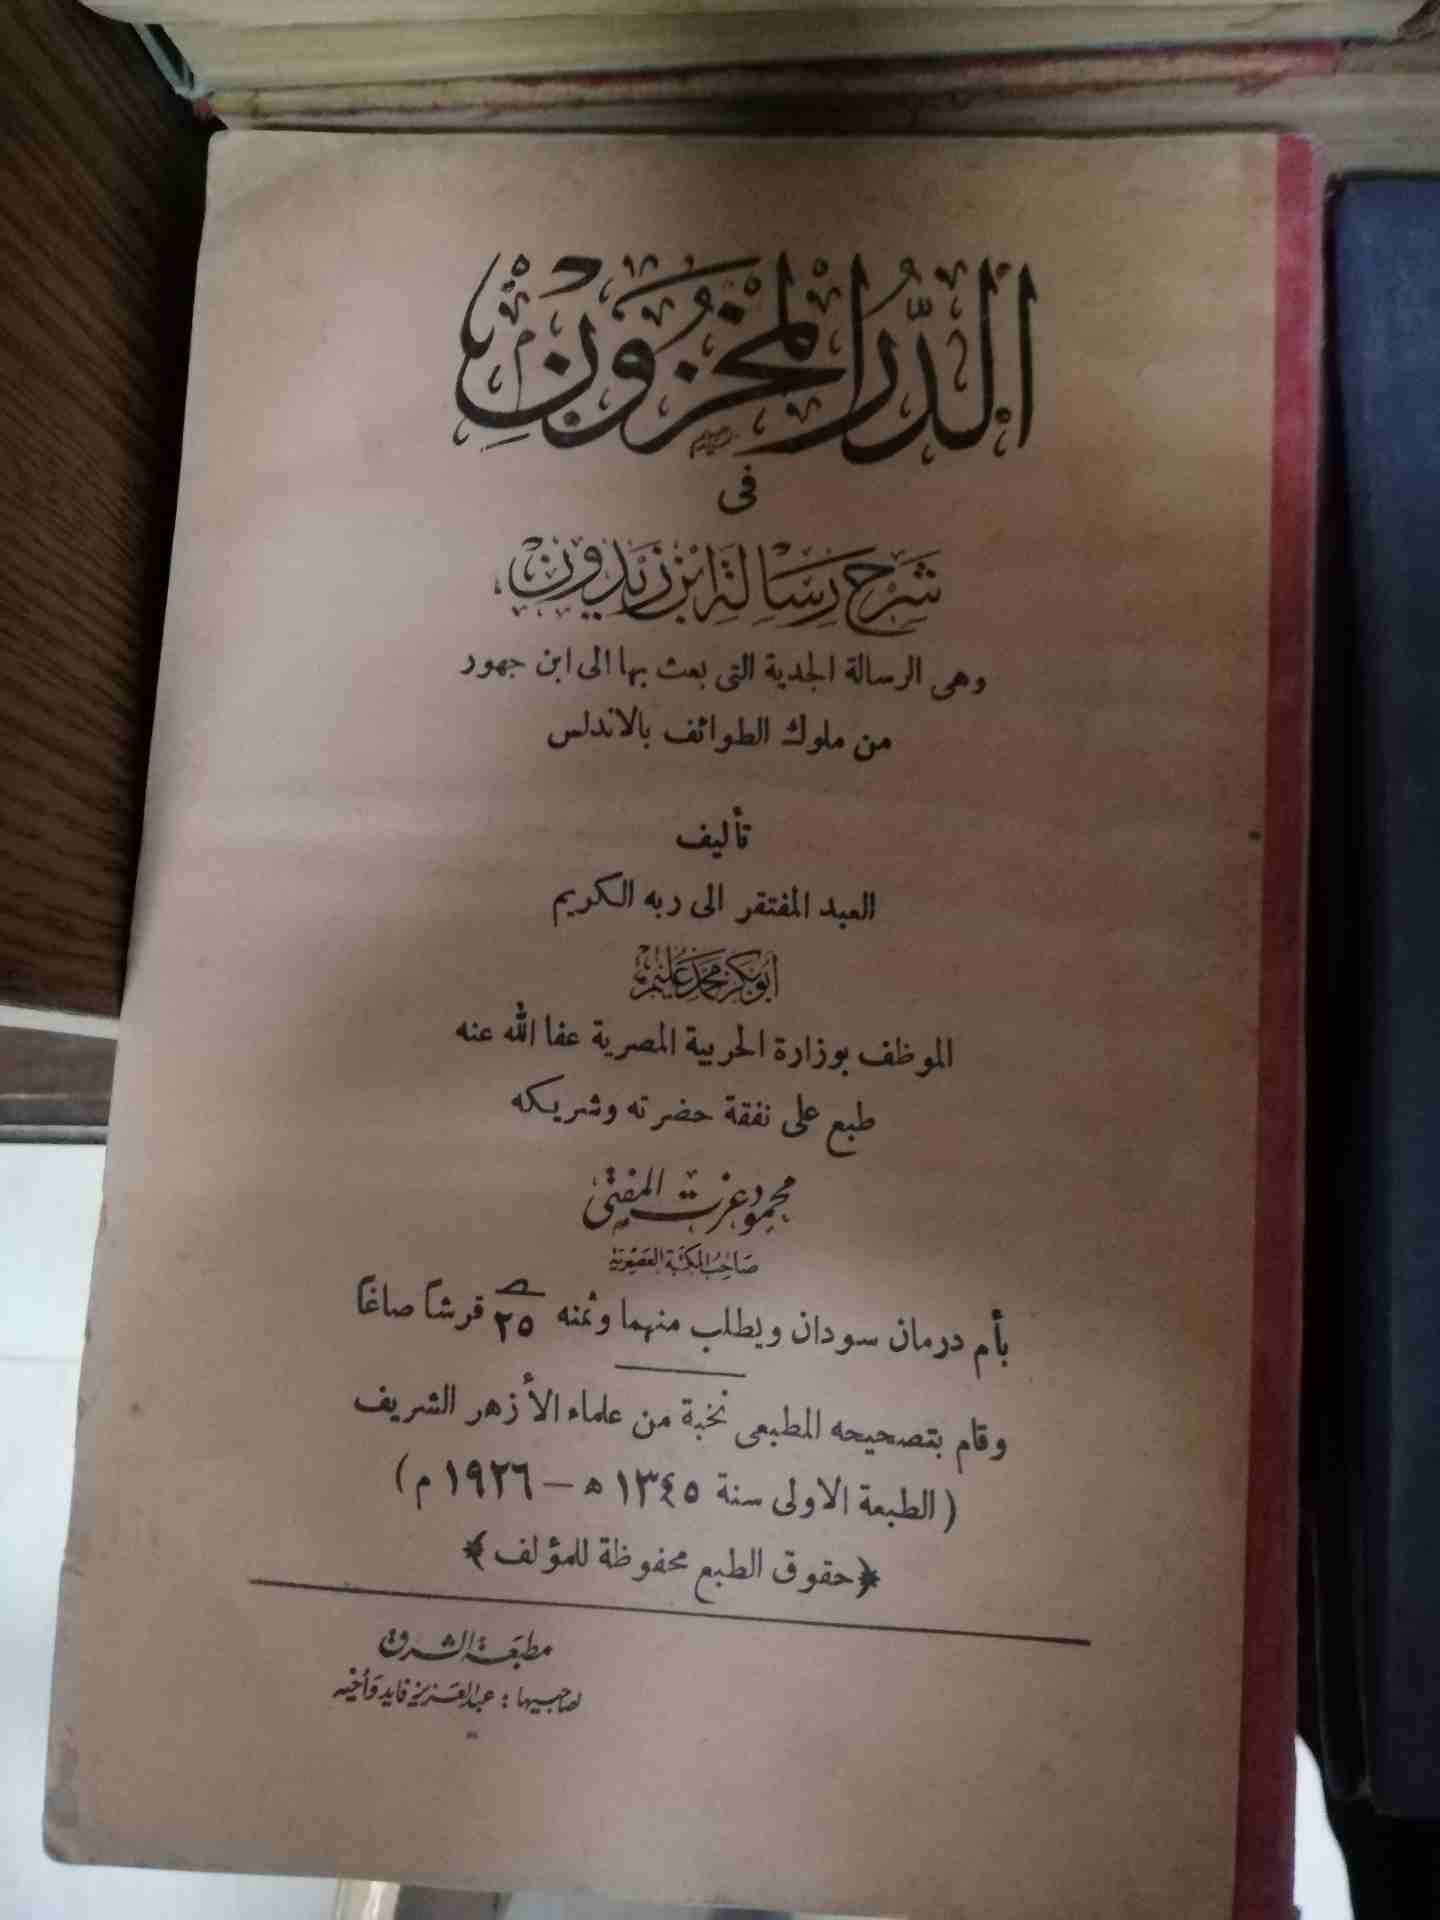 الدُّرُ المَخْزُونُ
فى
شَرْحِ رِسَالَةِ ابْنِ زَيْدُونَ
وهى الرسالة الجدية التى بعث بها الى ابن جهور
من ملوك الطوائف بالاندلس
تأليف
العبد المفتقر الى ربه الكريم
أبو بكر محمد عليم
الموظف بوزارة الحربية المصرية عفا الله عنه
طبع على نفقة حضرته وشريكه
محمود عزت المفتى
صاحب المكتبة العصرية
بأم درمان سودان ويطلب منهما وثمنه ٢٥ قرشاً صاغاً
وقام بتصحيحه المطبعى نخبة من علماء الأزهر الشريف
(الطبعة الاولى سنة ١٣٤٥ ه — ١٩٢٦ م)
﴿حقوق الطبع محفوظة للمؤلف﴾
مطبعة الشرق
لصاحبيها : عبد العزيز فايد وأخيه